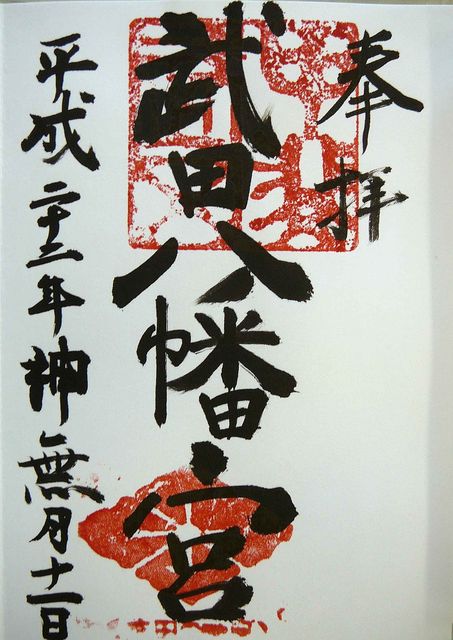 奉拝
武田八幡宮
平成二十二年神無月十一日